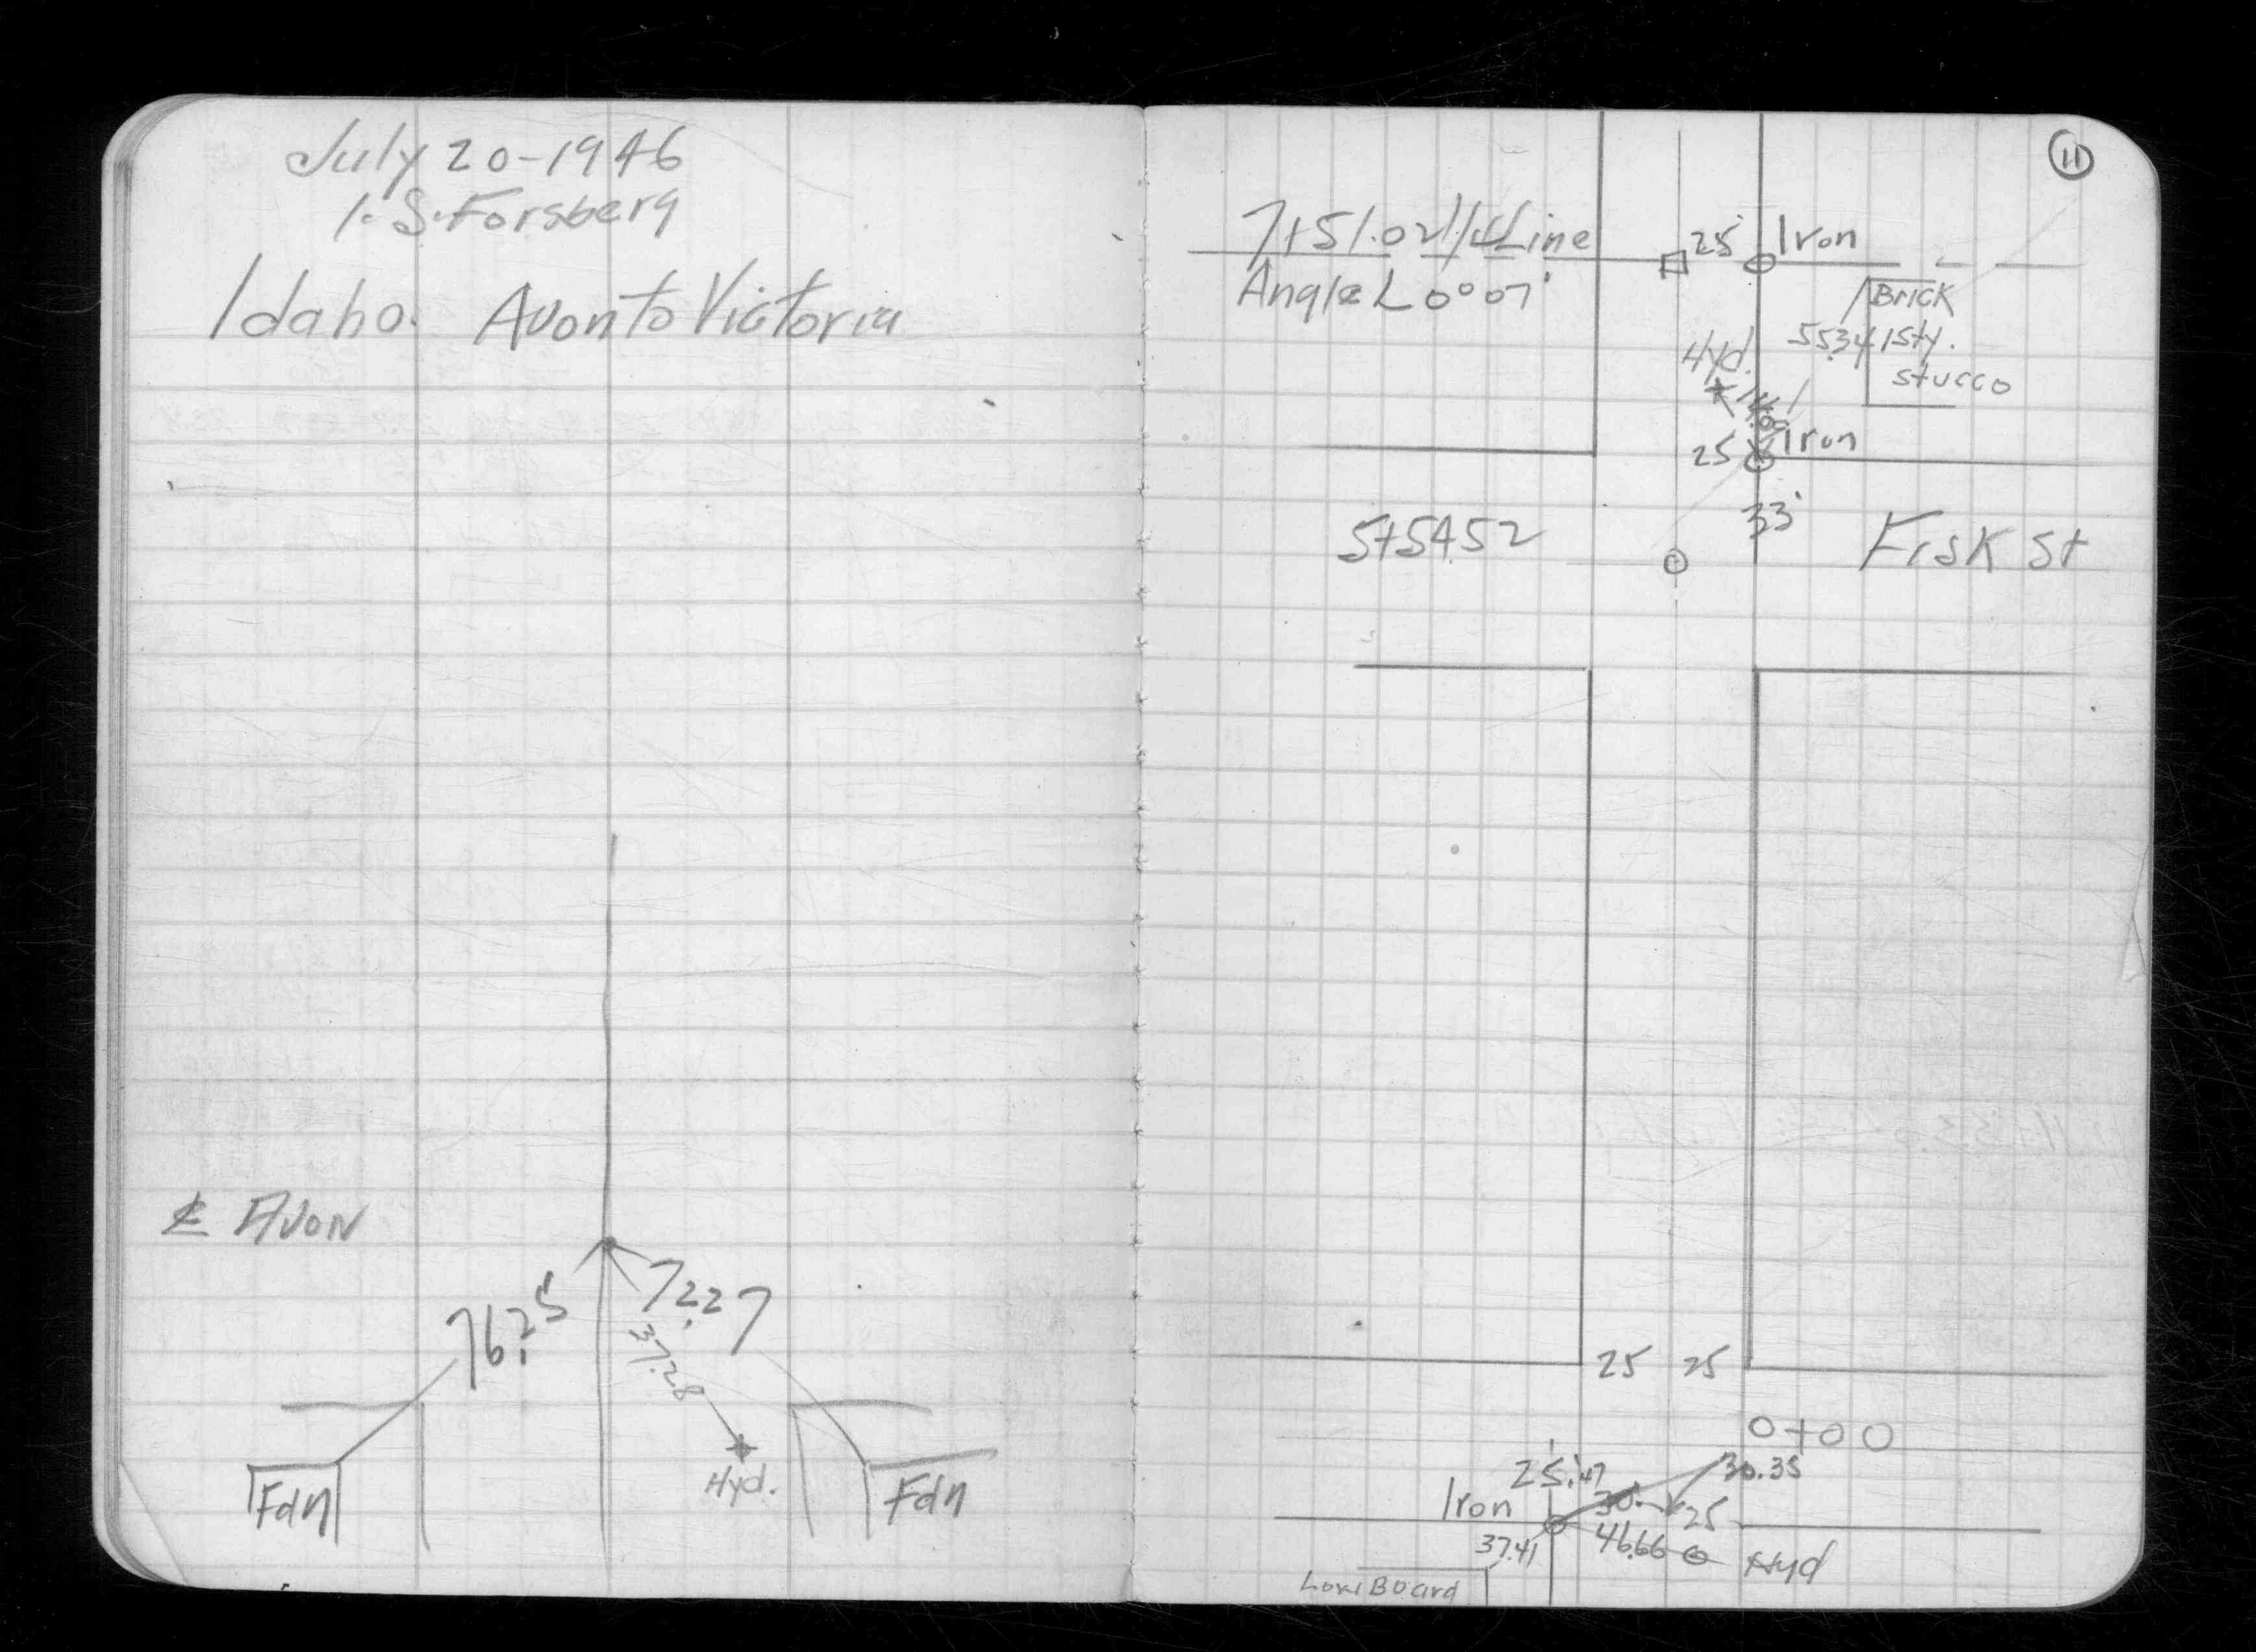 July 20-1946
I. S. Forsberg
Idaho. Avon to Victoria
℄ Avon
76.25
72.27
37.28
Fdn
Hyd.
Fdn
11
7+51.02
Line
25'
Iron
Angle L 0°07'
Brick
55.34
1 Sty.
Stucco
Hyd.
Iron
25
33'
5+54.52
Fisk St
25
25
0+00
25.47
30.35
Iron
30.
25
37.41
46.66
Hyd
Board